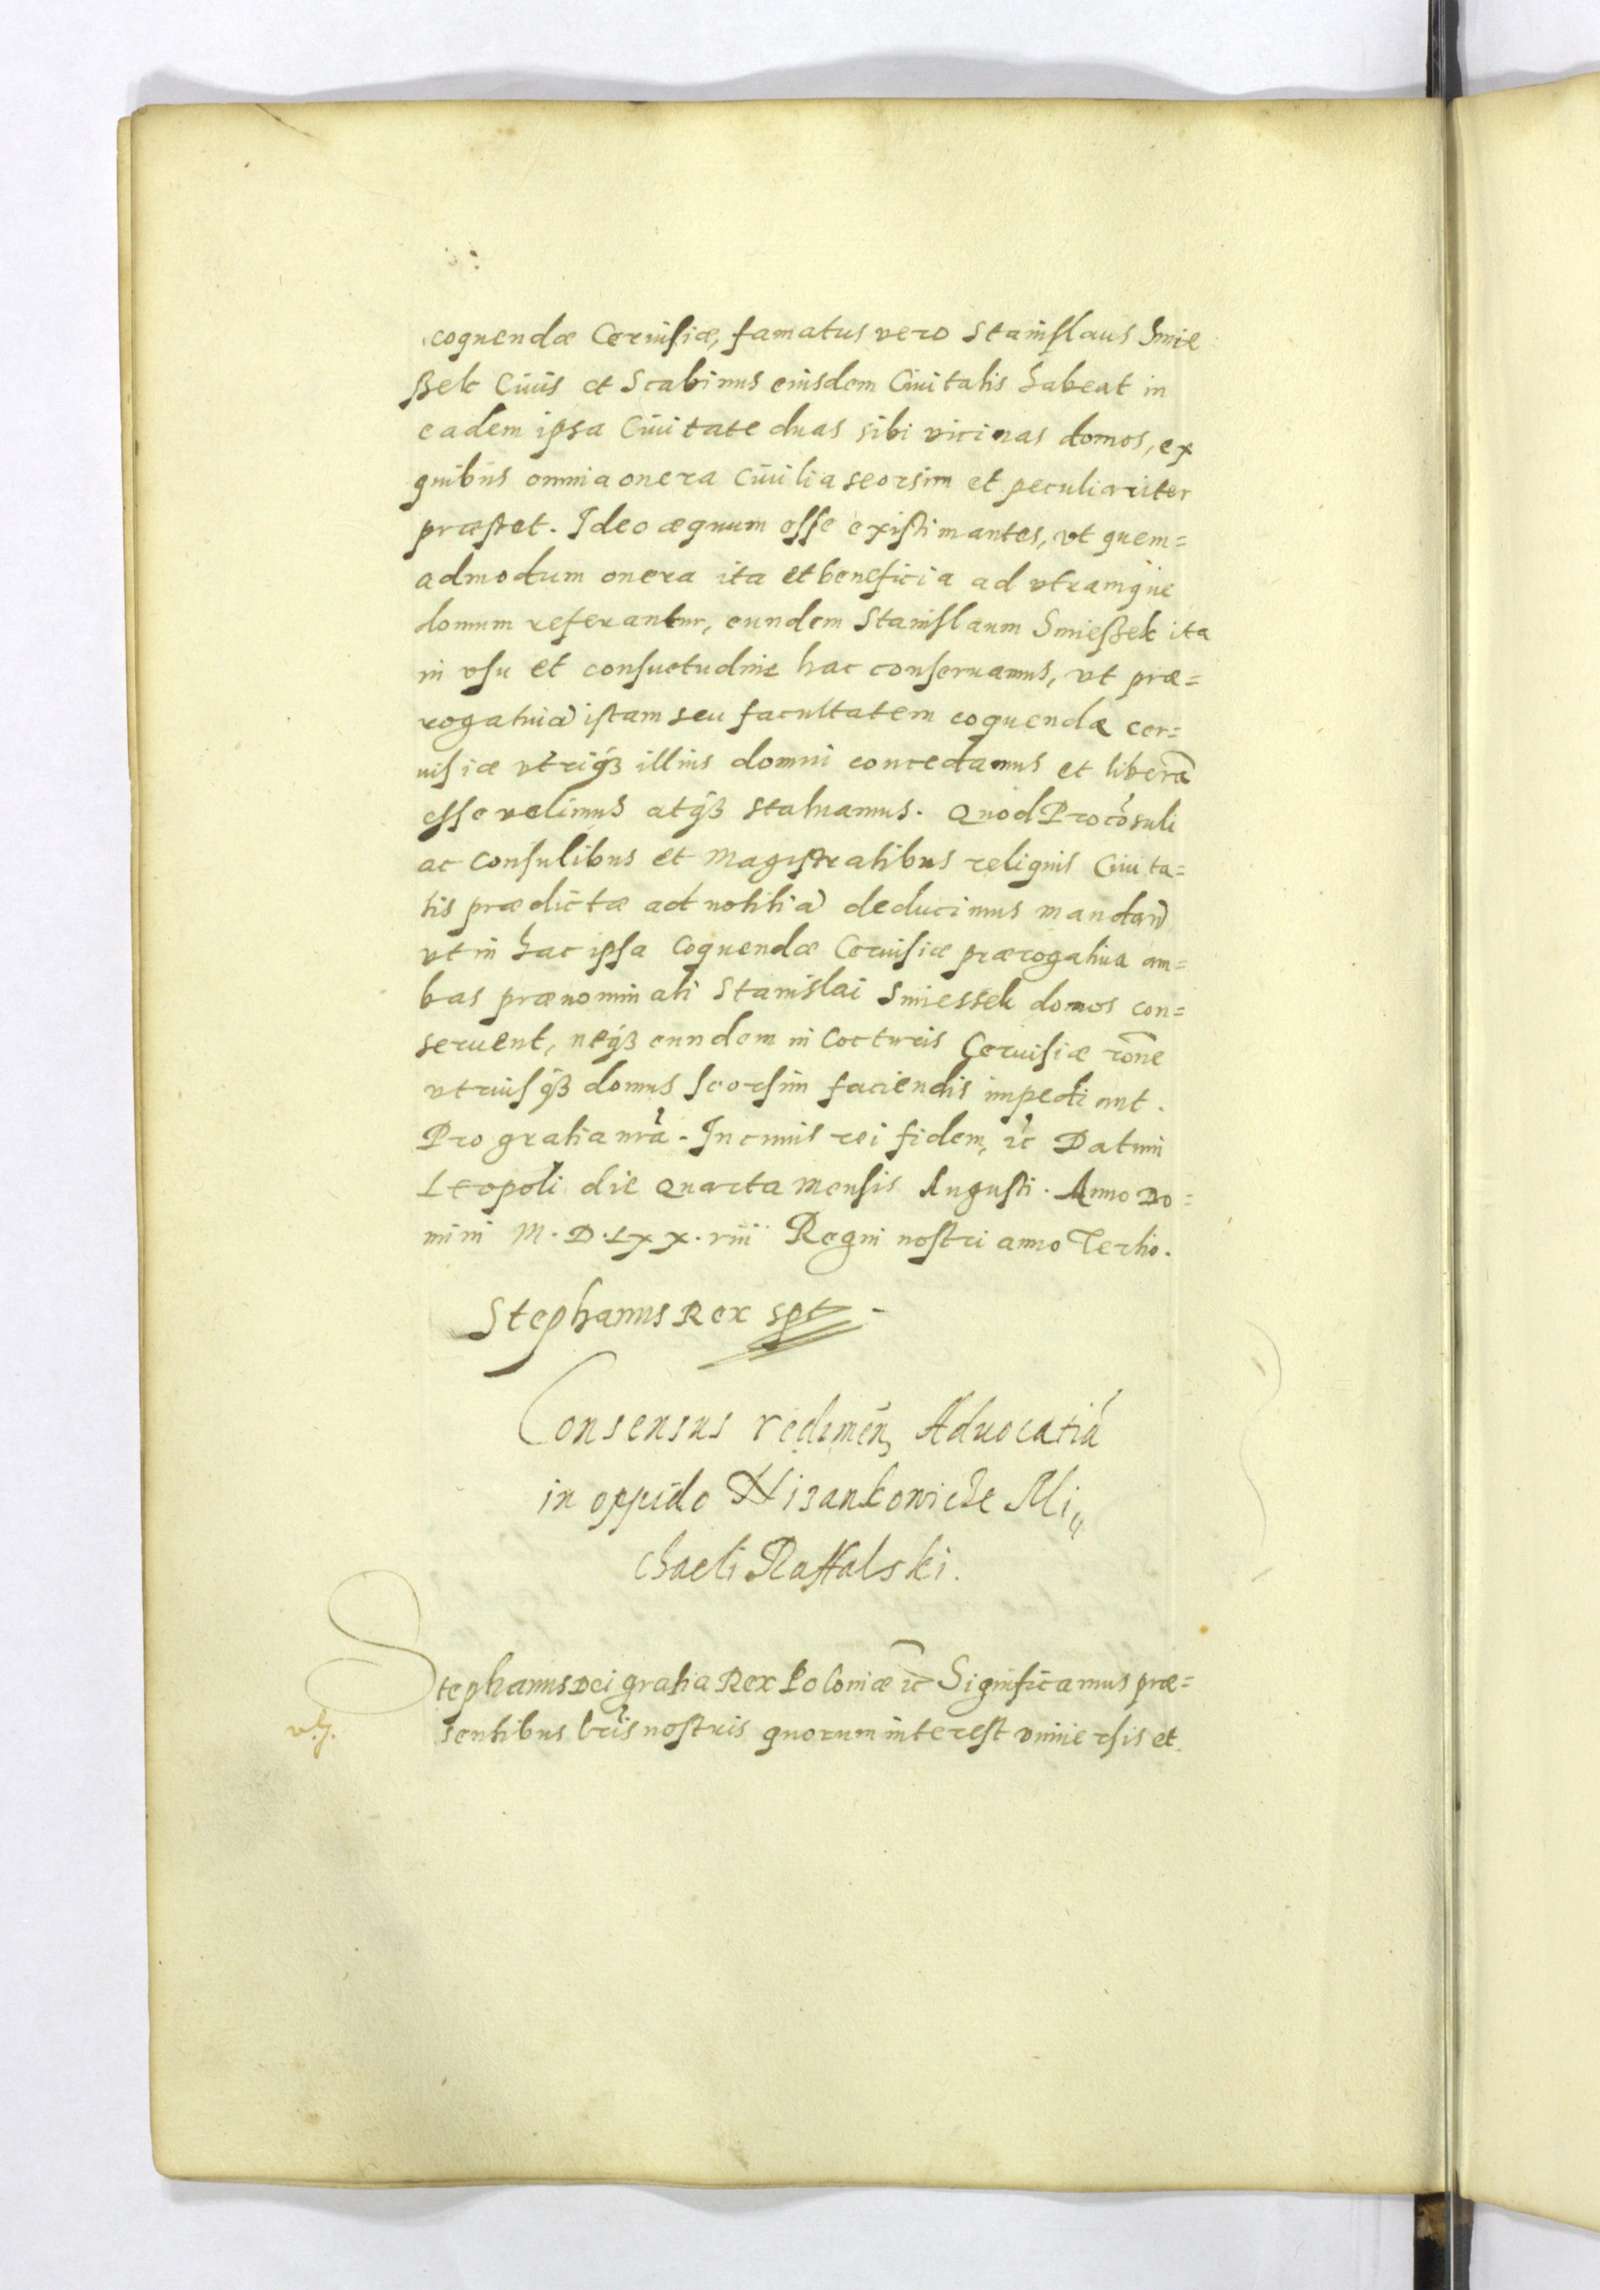 coquendæ Ceruisiæ, famatus vero Stanislaus Smie
ßek Ciuis et Scabinus eiusdem Ciuitatis habeat in
eadem ipsa Ciuitate duas sibi vicinas domos, ex
quibus omnia onera Ciuilia seorsim et peculiariter
præstet. Ideo æquum esse existimantes, vt quem=
admodum onera ita et beneficia ad vtramque
domum referantur, eundem Stanislaum Smießek ita
in vsu et consuetudine hac conseruamus, vt præ=
rogatiuā istam seu facultatem coquendæ cer=
uisiæ vtriqȝ illius domui concedamus et liberā
esse velimus atqȝ statuamus. Quod Procōsuli
ac Consulibus et Magistratibus reliquis Ciuita=
tis prædictæ ad notitiā deducimus mandañ
vt in hac ipsa Coquendæ Ceruisiæ prærogatiua am=
bas prænominati Stanislai Smiessek domos con=
seruent, neqȝ eundem in Cocturis Ceruisiæ rōne
vtriusqȝ domus seorsim faciendis impediant.
Pro gratia nrā. In cuius rei fidem, ꝛc Datum
Leopoli die Quarta Mensis Augusti. Anno Do=
mini M.D.LXX.viii Regni nostri anno Tertio.
Stephanus Rex spt
Consensus redimeñ Aduocatiā
in oppido Nizankowicze Mi„
chaeli Raffalski.
Stephanus Dei gratia Rex Poloniæ ꝛc Significamus præ=
sentibus lris nostris quorum interest vniuersis et